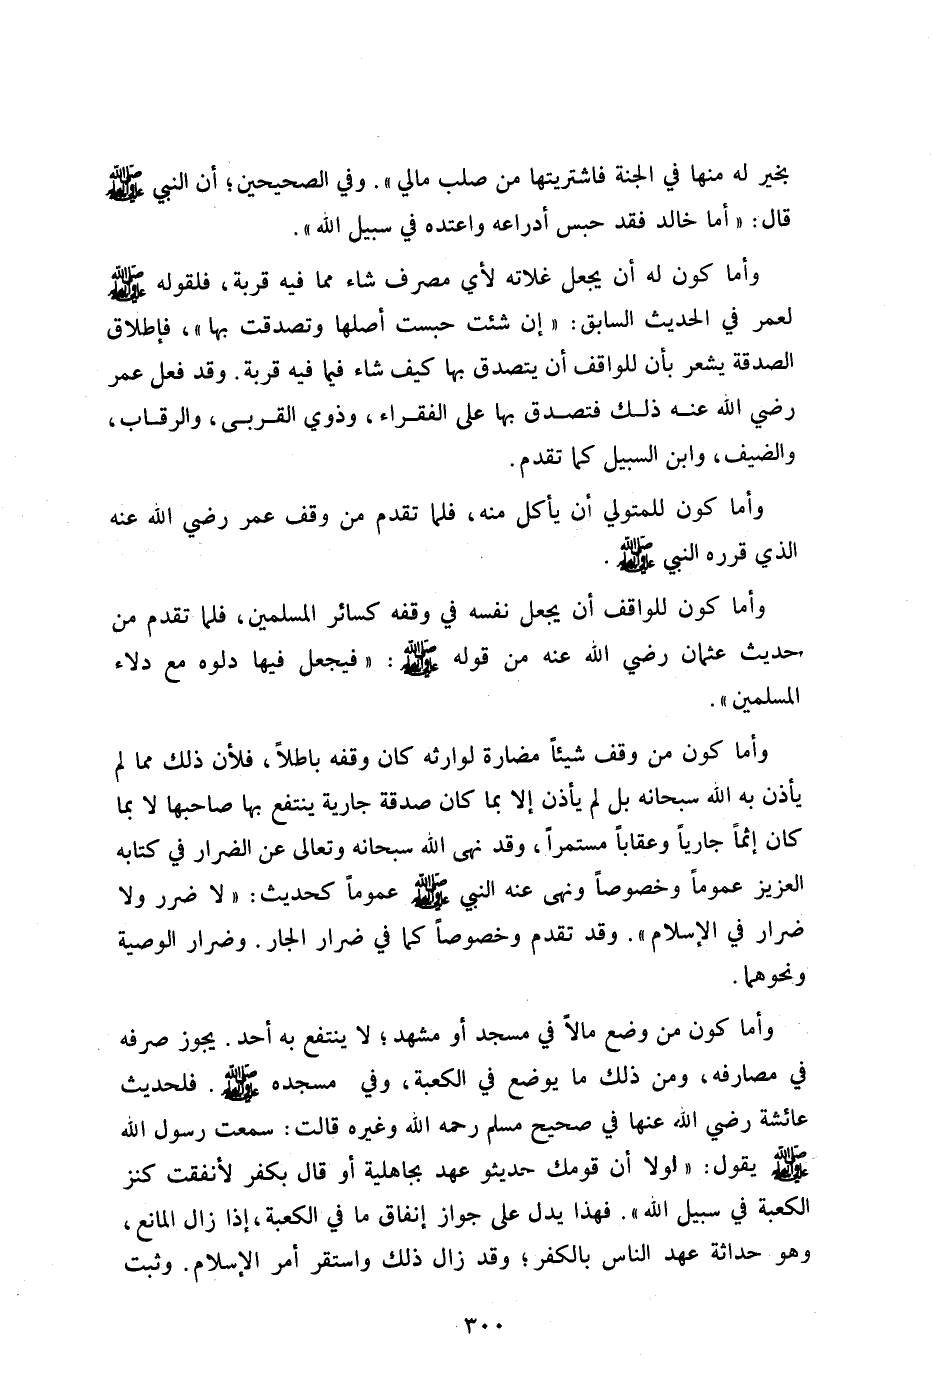 بخير له منها في الجنة فاشتريتها من صلب مالي». وفي الصحيحين؛ أن النبي ﷺ
قال: «أما خالد فقد حبس أدراعه واعتده في سبيل الله».
وأما كون له أن يجعل غلاته لأي مصرف شاء مما فيه قربة، فلقوله ﷺ
لعمر في الحديث السابق: «إن شئت حبست أصلها وتصدقت بها»، فإطلاق
الصدقة يشعر بأن للواقف أن يتصدق بها كيف شاء فيما فيه قربة. وقد فعل عمر
رضي الله عنه ذلك فتصدق بها على الفقراء، وذوي القربى، والرقاب،
والضيف، وابن السبيل كما تقدم.
وأما كون للمتولي أن يأكل منه، فلما تقدم من وقف عمر رضي الله عنه
الذي قرره النبي ﷺ.
وأما كون للواقف أن يجعل نفسه في وقفه كسائر المسلمين، فلما تقدم من
حديث عثمان رضي الله عنه من قوله ﷺ: «فيجعل فيها دلوه مع دلاء
المسلمين».
وأما كون من وقف شيئاً مضارة لوارثه كان وقفه باطلاً، فلأن ذلك مما لم
يأذن به الله سبحانه بل لم يأذن إلا بما كان صدقة جارية ينتفع بها صاحبها لا بما
كان إثماً جارياً وعقاباً مستمراً، وقد نهى الله سبحانه وتعالى عن الضرار في كتابه
العزيز عموماً وخصوصاً ونهى عنه النبي ﷺ عموماً كحديث: «لا ضرر ولا
ضرار في الإسلام». وقد تقدم وخصوصاً كما في ضرار الجار. وضرار الوصية
ونحوهما.
وأما كون من وضع مالاً في مسجد أو مشهد؛ لا ينتفع به أحد. يجوز صرفه
في مصارفه، ومن ذلك ما يوضع في الكعبة، وفي مسجده ﷺ. فلحديث
عائشة رضي الله عنها في صحيح مسلم رحمه الله وغيره قالت: سمعت رسول الله
ﷺ يقول: «لولا أن قومك حديثو عهد بجاهلية أو قال بكفر لأنفقت كنز
الكعبة في سبيل الله». فهذا يدل على جواز إنفاق ما في الكعبة، إذا زال المانع،
وهو حداثة عهد الناس بالكفر؛ وقد زال ذلك واستقر أمر الإسلام. وثبت
٣٠٠